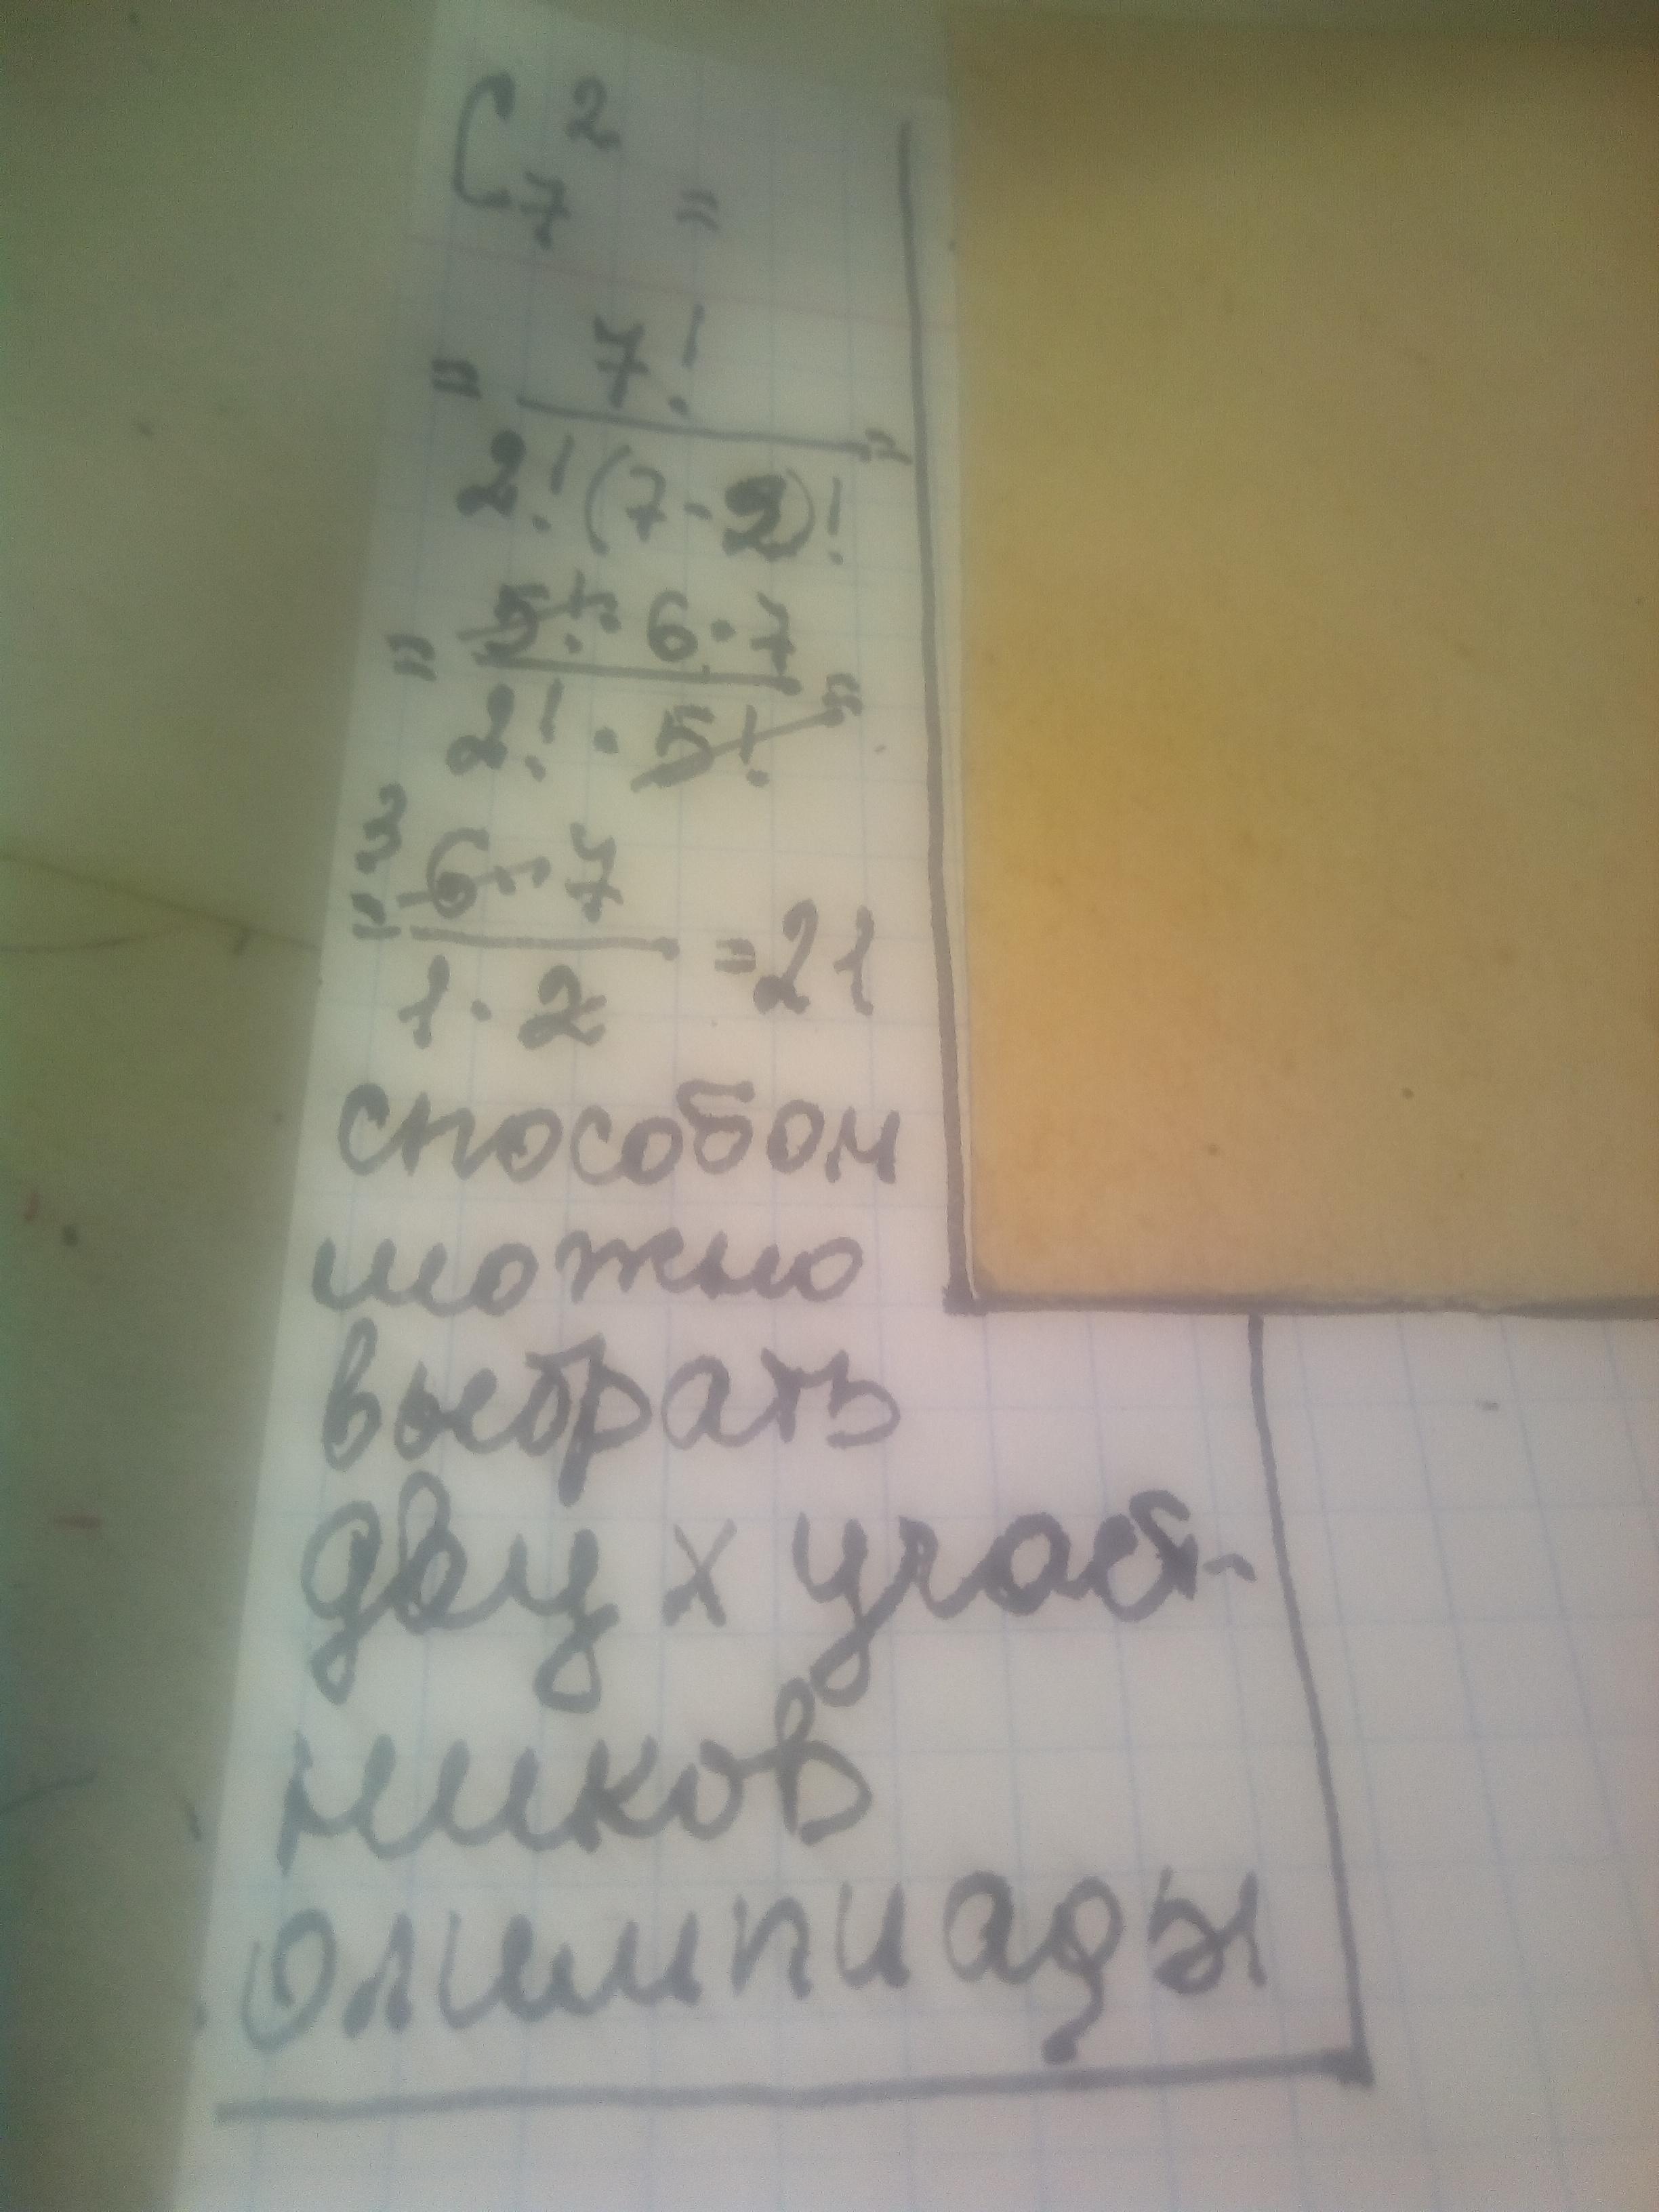 C₇² =
= 7! / 2!(7-2)! =
= 5!·6·7 / 2!·5! =
= ³6·7 / 1·2 = 21
способом
можно
выбрать
двух участ-
ников
олимпиады